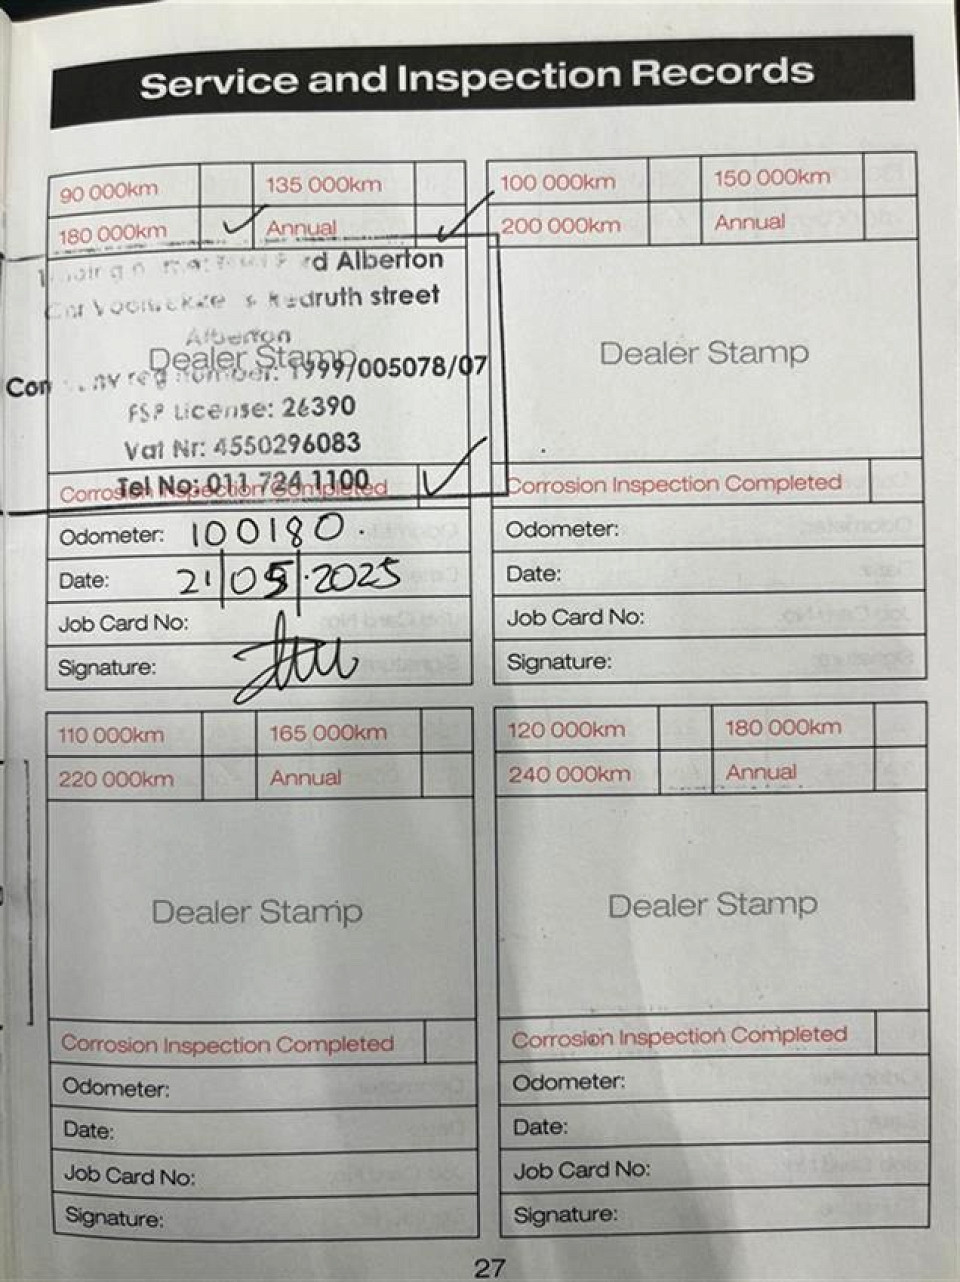 Service and Inspection Records
90 000km 135 000km
180 000km ✓ Annual ✓
rd Alberton
Redruth street
Alberton
Dealer Stamp
reg number: 1999/005078/07
FSP License: 26390
Vat Nr: 4550296083
Tel No: 011 724 1100
Corrosion Inspection Completed ✓
Odometer: 100180.
Date: 21/05.2025
Job Card No:
Signature:
100 000km 150 000km
200 000km Annual
Dealer Stamp
Corrosion Inspection Completed
Odometer:
Date:
Job Card No:
Signature:
110 000km 165 000km
220 000km Annual
Dealer Stamp
Corrosion Inspection Completed
Odometer:
Date:
Job Card No:
Signature:
120 000km 180 000km
240 000km Annual
Dealer Stamp
Corrosion Inspection Completed
Odometer:
Date:
Job Card No:
Signature:
27